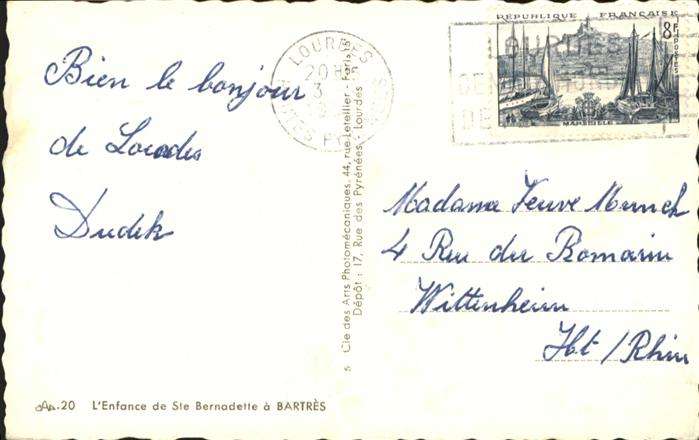 Bien le bonjour
de Lourdes
Dudek
LOURDES
20H
3
HTES PYRENEES
REPUBLIQUE FRANÇAISE
8F
POSTES
MARSEILLE
Cie des Arts Photomécaniques, 44, rue Letellier - Paris-15
Dépôt : 17, Rue des Pyrénées, - Lourdes
5
Madame Veuve Munch
4 Rue du Romarin
Wittenheim
Ht/Rhin
20 L'Enfance de Ste Bernadette à BARTRÈS